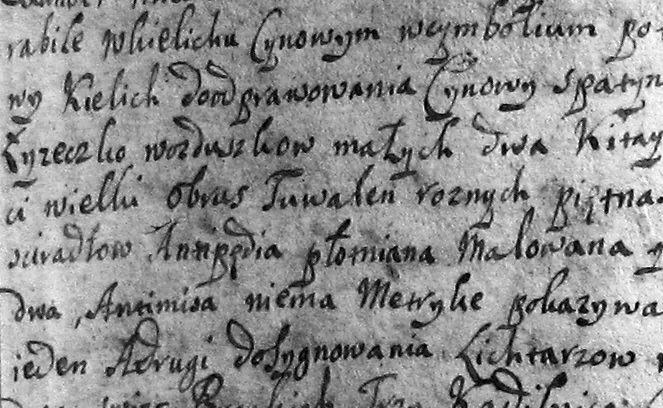 rabile whielichu Cynowym wcymbolium po
wy Kielich doodprawowania Cynowy spatyn
Łyzeczko wozduszkow małych dwa Kitay
ci wielki obrus Tuwalen roznych piętna
scieradłow Antipędia płotniana Malowana y
dwa, Antimisa niema Metryke pokazywa
ieden Adrugi dosygnowania Lichtarzow
Trzy